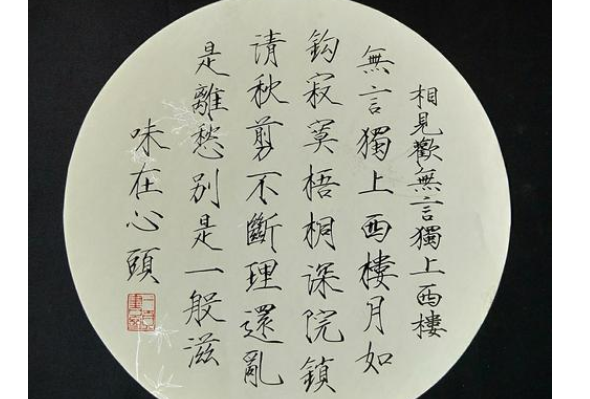 相見歡無言獨上西樓
無言獨上西樓月如
鈎寂寞梧桐深院鎖
清秋剪不斷理還亂
是離愁别是一般滋
味在心頭